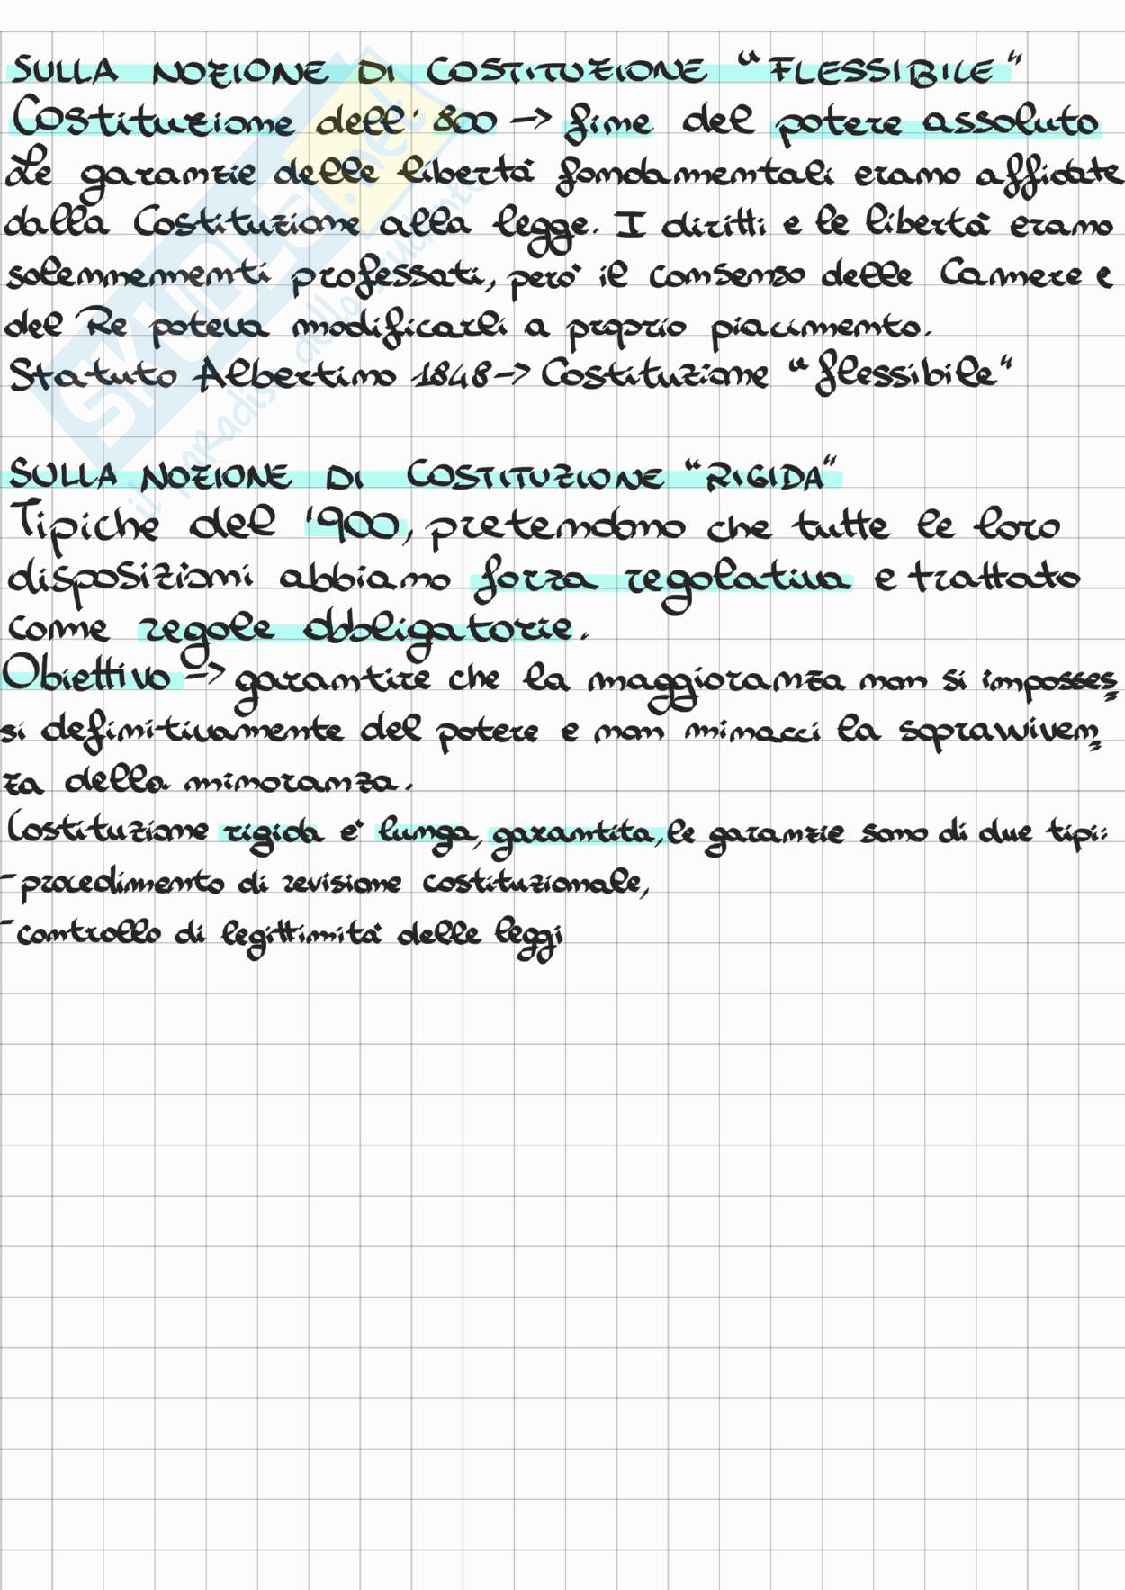 SULLA NOZIONE DI COSTITUZIONE "FLESSIBILE"
Costituzione dell'800 -> fine del potere assoluto
Le garanzie delle libertà fondamentali erano affidate
dalla Costituzione alla legge. I diritti e le libertà erano
solennementi professati, però il consenso delle Camere e
del Re poteva modificarli a proprio piacimento.
Statuto Albertino 1848 -> Costituzione "flessibile"
SULLA NOZIONE DI COSTITUZIONE "RIGIDA"
Tipiche del '900, pretendono che tutte le loro
disposizioni abbiamo forza regolativa e trattato
come regole obbligatorie.
Obiettivo -> garantire che la maggioranza non si imposses
si definitivamente del potere e non minacci la sopravviven
za della minoranza.
Costituzione rigida è lunga, garantita, le garanzie sono di due tipi:
- procedimento di revisione costituzionale,
- controllo di legittimità delle leggi
SKUOLA.net
il paradiso dello studente